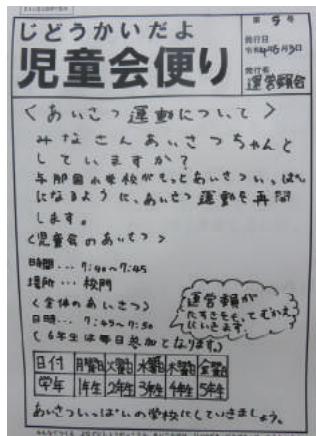 じどうかいだよ
児童会便り
第5号
発行日
発行者
運営委員会
<あいさつ運動について>
みなさんあいさつちゃんと
していますか?
与那国小学校がもっとあいさついっぱい
になるように、あいさつ運動を再開
します。
<児童会のあいさつ>
時間…7:40~7:45
場所…校門
<全体のあいさつ>
日時…7:45~7:50
(6年生は毎日参加となります。)
運営委員が
たすきをもってむかえ
にいきます。
日付 月曜日 火曜日 水曜日 木曜日 金曜日
学年 1年生 2年生 3年生 4年生 5年生
あいさついっぱいの学校にしていきましょう。